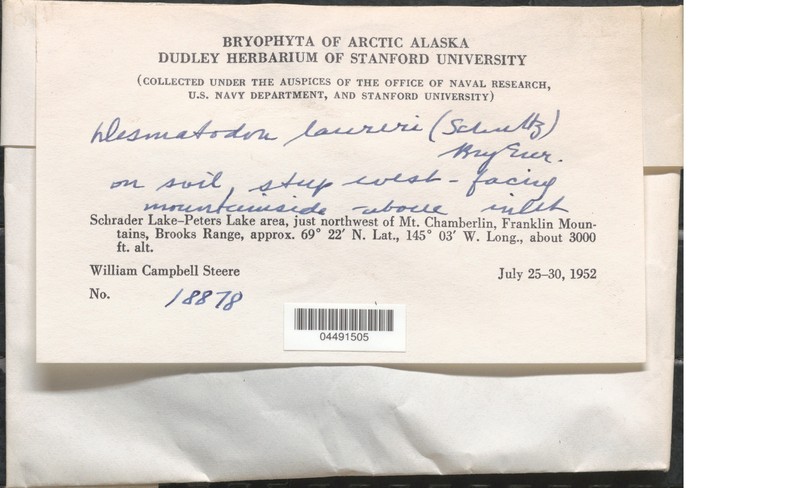 BRYOPHYTA OF ARCTIC ALASKA
DUDLEY HERBARIUM OF STANFORD UNIVERSITY
(COLLECTED UNDER THE AUSPICES OF THE OFFICE OF NAVAL RESEARCH,
U.S. NAVY DEPARTMENT, AND STANFORD UNIVERSITY)
Desmatodon laureri (Schultz)
Bry Eur.
on soil, steep west-facing
mountainside above inlet
Schrader Lake–Peters Lake area, just northwest of Mt. Chamberlin, Franklin Moun-
tains, Brooks Range, approx. 69° 22′ N. Lat., 145° 03′ W. Long., about 3000
ft. alt.
William Campbell Steere July 25–30, 1952
No. 18878
04491505